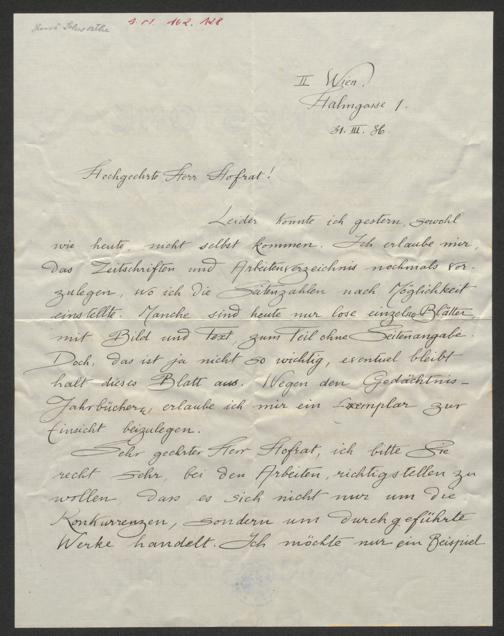 3.01.162.128
II Wien.
Halmgasse 1.
31. III. 36.
Hochgeehrte Herr Hofrat!
Leider konnte ich gestern, sowohl
wie heute, nicht selbst kommen. Ich erlaube mir,
das Zeitschriften und Arbeitenverzeichnis nochmals vor-
zulegen, wo ich die Seitenzahlen nach Möglichkeit
einstellte. Manche sind heute nur lose einzelne Blätter
mit Bild und Text, zum Teil ohne Seitenangabe.
Doch, das ist ja nicht so wichtig, eventuel bleibt
halt dieses Blatt aus. Wegen den Gedächtnis-
Jahrbücher, erlaube ich mir ein Exemplar zur
Einsicht beizulegen.
Sehr geehrter Herr Hofrat, ich bitte Sie
recht sehr, bei den Arbeiten, richtigstellen zu
wollen, dass es sich nicht nur um die
Konkurrenzen, sondern um durchgeführte
Werke handelt. Ich möchte nur ein Beispiel